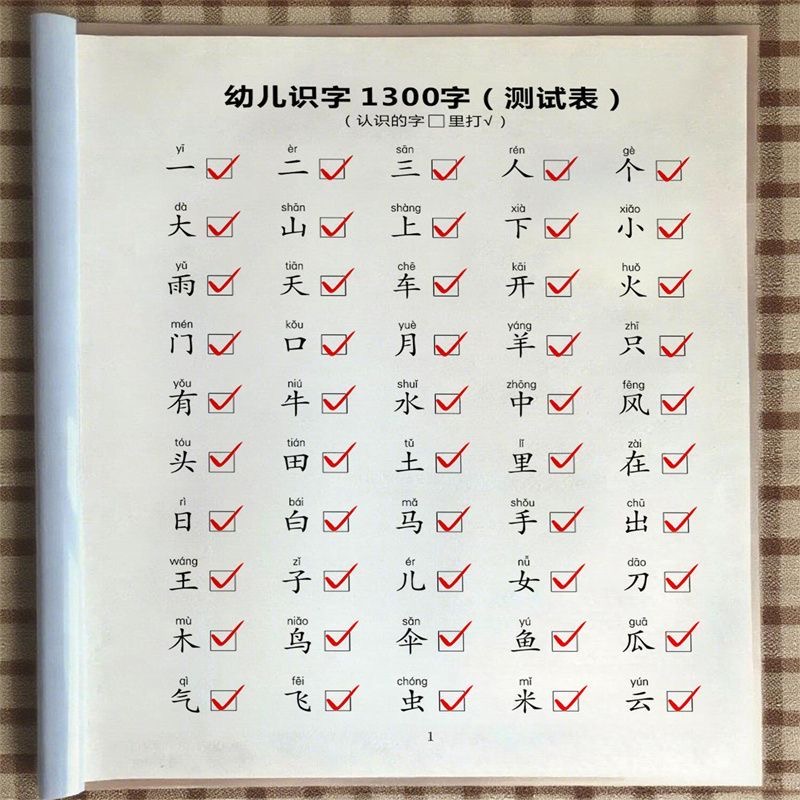 幼儿识字1300字（测试表）
（认识的字□里打√）
yī èr sān rén gè
一 ☑ 二 ☑ 三 ☑ 人 ☑ 个 ☑
dà shān shàng xià xiǎo
大 ☑ 山 ☑ 上 ☑ 下 ☑ 小 ☑
yǔ tiān chē kāi huǒ
雨 ☑ 天 ☑ 车 ☑ 开 ☑ 火 ☑
mén kǒu yuè yáng zhī
门 ☑ 口 ☑ 月 ☑ 羊 ☑ 只 ☑
yǒu niú shuǐ zhōng fēng
有 ☑ 牛 ☑ 水 ☑ 中 ☑ 风 ☑
tóu tián tǔ lǐ zài
头 ☑ 田 ☑ 土 ☑ 里 ☑ 在 ☑
rì bái mǎ shǒu chū
日 ☑ 白 ☑ 马 ☑ 手 ☑ 出 ☑
wáng zǐ ér nǚ dāo
王 ☑ 子 ☑ 儿 ☑ 女 ☑ 刀 ☑
mù niǎo sǎn yú guā
木 ☑ 鸟 ☑ 伞 ☑ 鱼 ☑ 瓜 ☑
qì fēi chóng mǐ yún
气 ☑ 飞 ☑ 虫 ☑ 米 ☑ 云 ☑
1